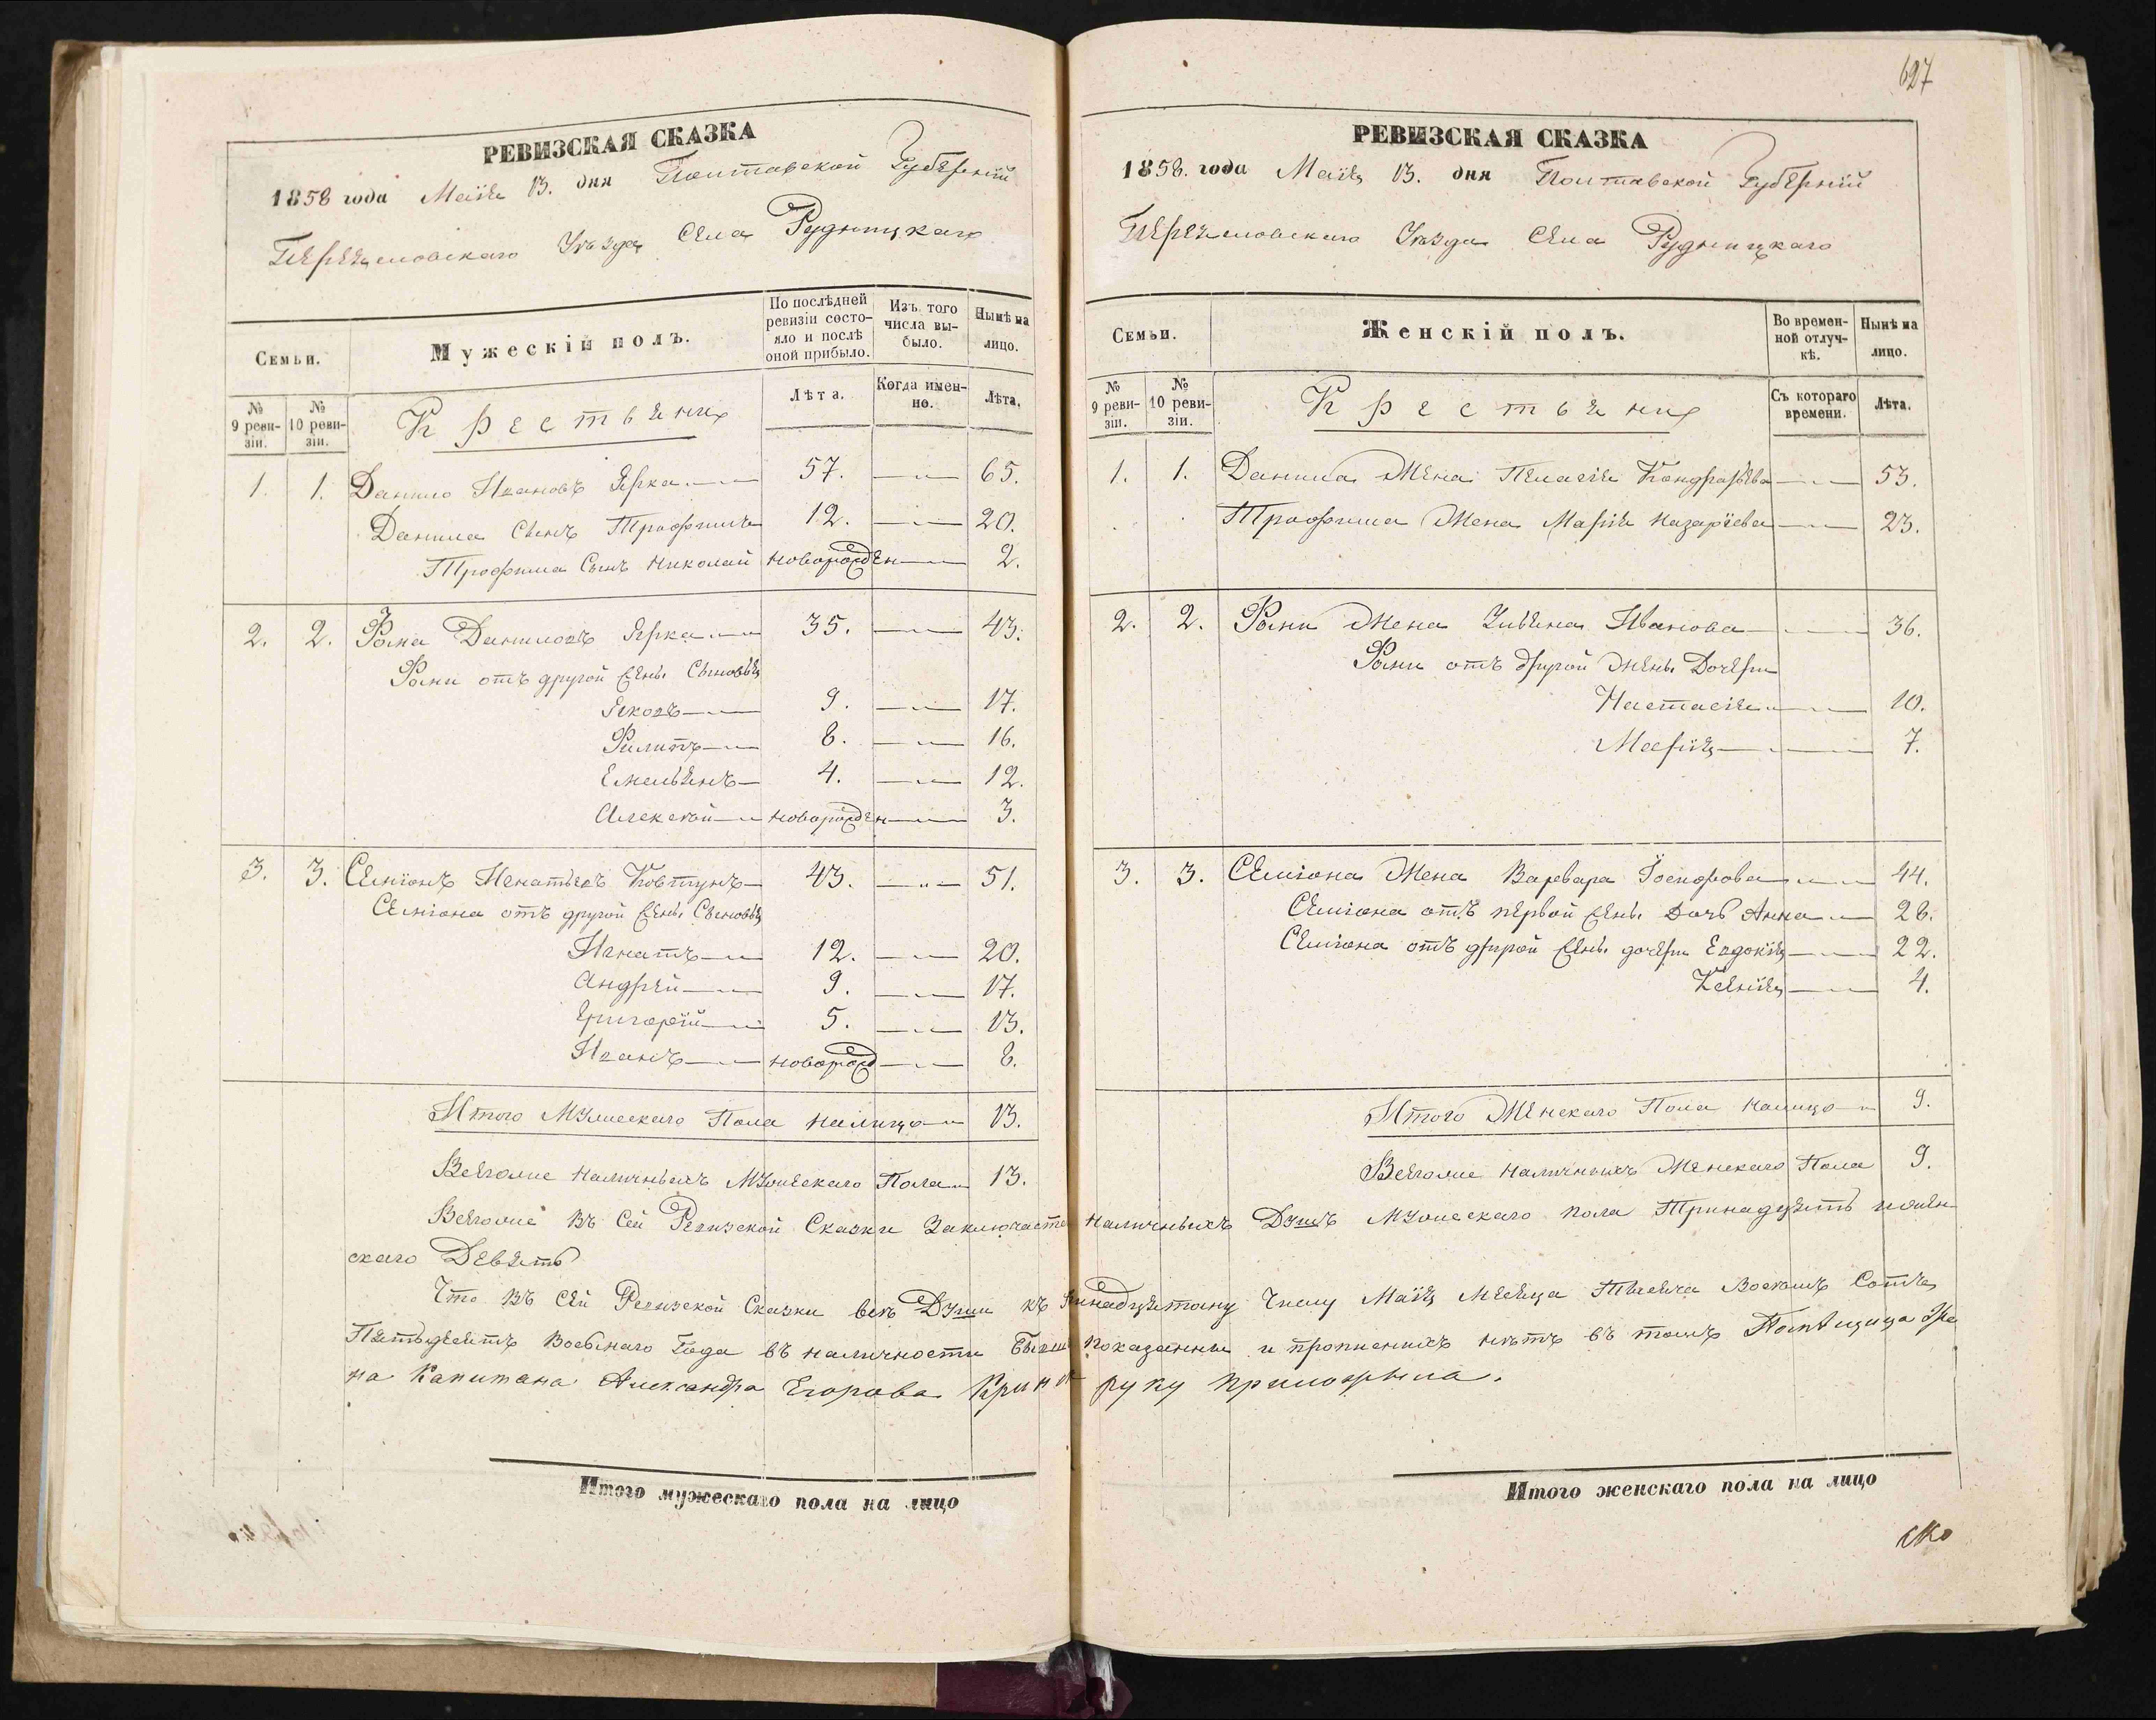 627
РЕВИЗСКАЯ СКАЗКА
1858 года Маія 13. дня Полтавской Губерніи
Переяславскаго Уѣзда Села Рудницкаго
Семьи.
Мужескій полъ.
По послѣдней ревизіи состояло и послѣ оной прибыло.
Изъ того числа выбыло.
Нынѣ на лицо.
№ 9 ревизіи.
№ 10 ревизіи.
Крестьяне
Лѣта.
Когда именно.
Лѣта.
1. 1. Данило Ивановъ Ярка 57. — 65.
Данила Сынъ Трофимъ 12. — 20.
Трофима Сынъ Николай новорожден — 2.
2. 2. Фома Даниловъ Ярка 35. — 43.
Фомы отъ другой жены Сыновья
Яковъ 9. — 17.
Филипъ 8. — 16.
Емельянъ 4. — 12.
Алексѣй новорожден — 3.
3. 3. Семіонъ Игнатьевъ Ковтунъ 43. — 51.
Семіона отъ другой жены Сыновья
Игнатъ 12. — 20.
Андрей 9. — 17.
Григорій 5. — 13.
Иванъ новорожд — 8.
Итого Мужескаго Пола налицо 13.
Всѣголие наличныхъ Мужескаго Пола 13.
РЕВИЗСКАЯ СКАЗКА
1858. года Маія 13. дня Полтавской Губерніи
Переяславскаго Уѣзда Села Рудницкаго
Семьи.
Женскій полъ.
Во временной отлучкѣ.
Нынѣ на лицо.
№ 9 ревизіи.
№ 10 ревизіи.
Крестьяне
Съ котораго времени.
Лѣта.
1. 1. Данила Жена Пелагія Кондратьева — 53.
Трофима Жена Марія Назаріева — 23.
2. 2. Фомы Жена Ульяна Иванова — 36.
Фомы отъ другой жены Дочери
Настасія — 10.
Марія — 7.
3. 3. Семіона Жена Варвара Іосифова — 44.
Семіона отъ первой жены Дочь Анна — 28.
Семіона отъ другой жены дочери Евдокія — 22.
Ксенія — 4.
Итого Женскаго Пола налицо 9.
Всѣголие наличныхъ Женскаго Пола 9.
Всѣголие въ Сей Ревизской Сказки Заключается наличныхъ Душъ Мужескаго пола Тринадцять и женскаго
Девять
Что въ Сей Ревизской Сказки всѣ Души къ тринадцятому Числу Маія Мѣсяца Тысяча Восемь Сотъ
Пятьдесятъ Восьмаго Года въ наличности были показанны и прописныхъ нѣтъ въ томъ Помѣщица
на Капитана Александра Егорова руку приложила.
Итого мужескаго пола на лицо
Итого женскаго пола на лицо